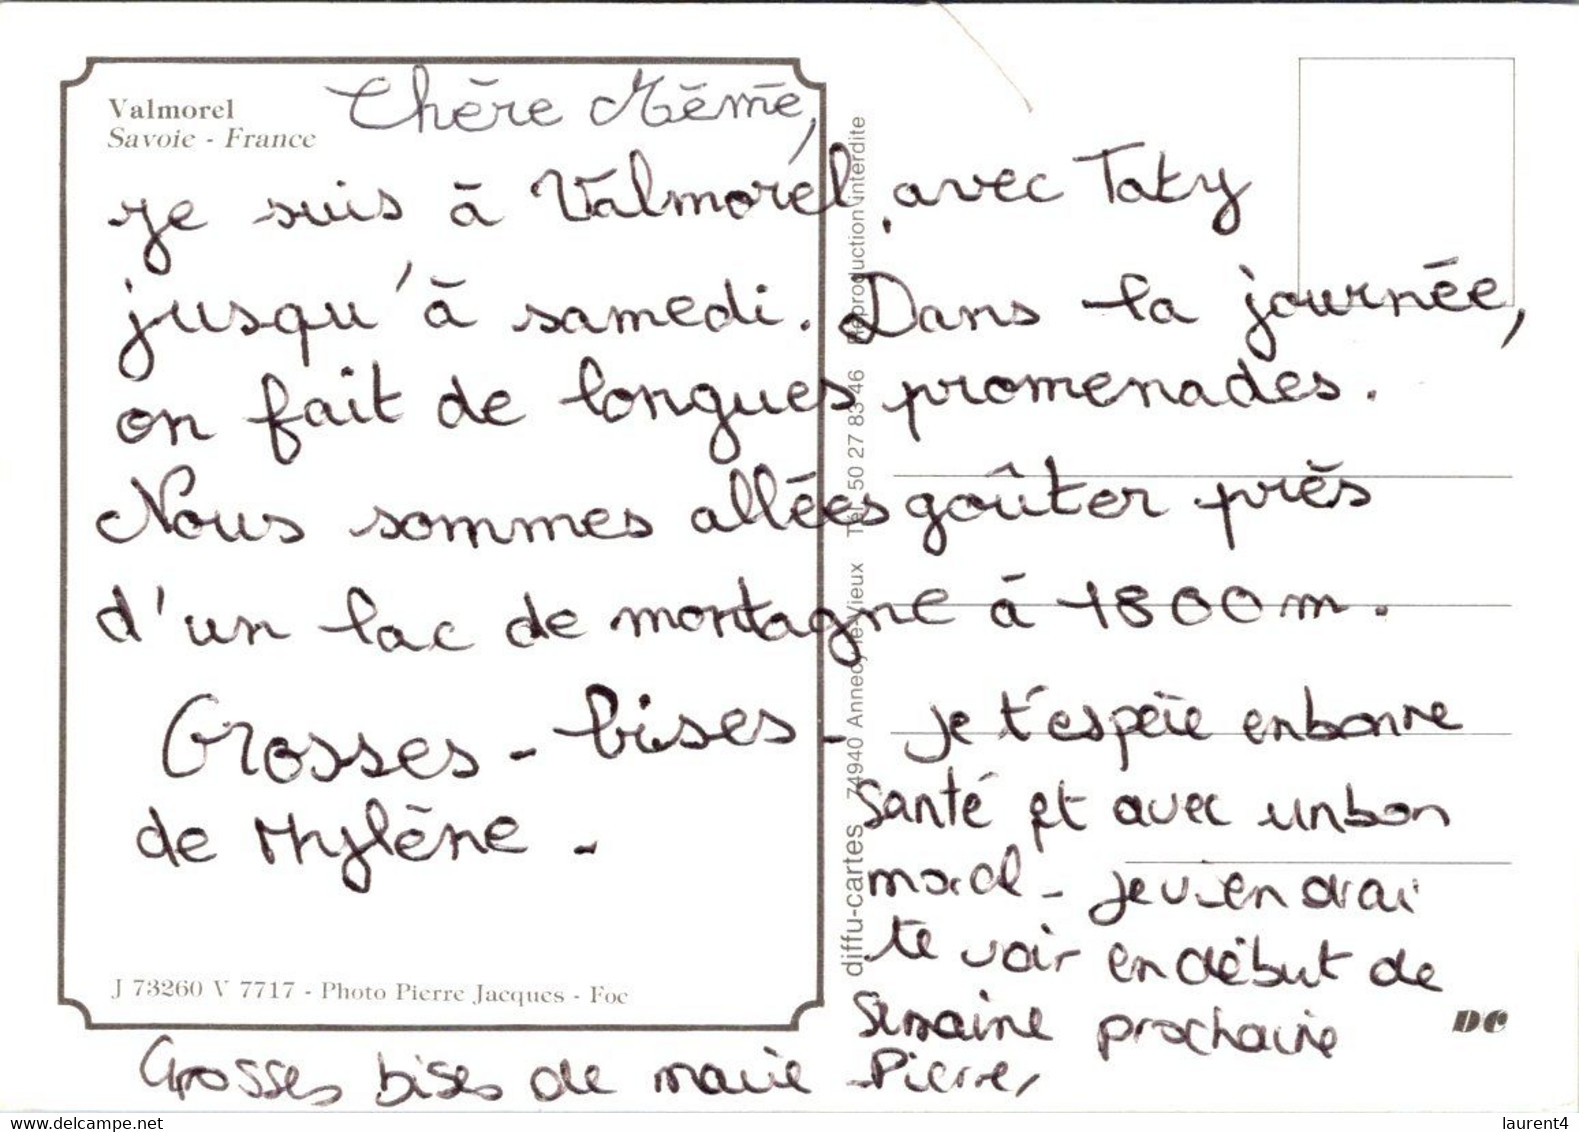 Valmorel
Savoie - France
Chère Mémé,
je suis à Valmorel, avec Taty
jusqu'à samedi. Dans la journée,
on fait de longues promenades.
Nous sommes allées goûter près
d'un lac de montagne à 1800m.
Grosses - bises -
de Mylène -
je t'espère en bonne
santé et avec un bon
moral - je viendrai
te voir en début de
semaine prochaine
Grosses bises de marie - Pierre,
J 73260 V 7717 - Photo Pierre Jacques - Foc
diffu-cartes 74940 Annecy-le-Vieux Tél. 50 27 83 46 Reproduction interdite
DC
delcampe.net
laurent4